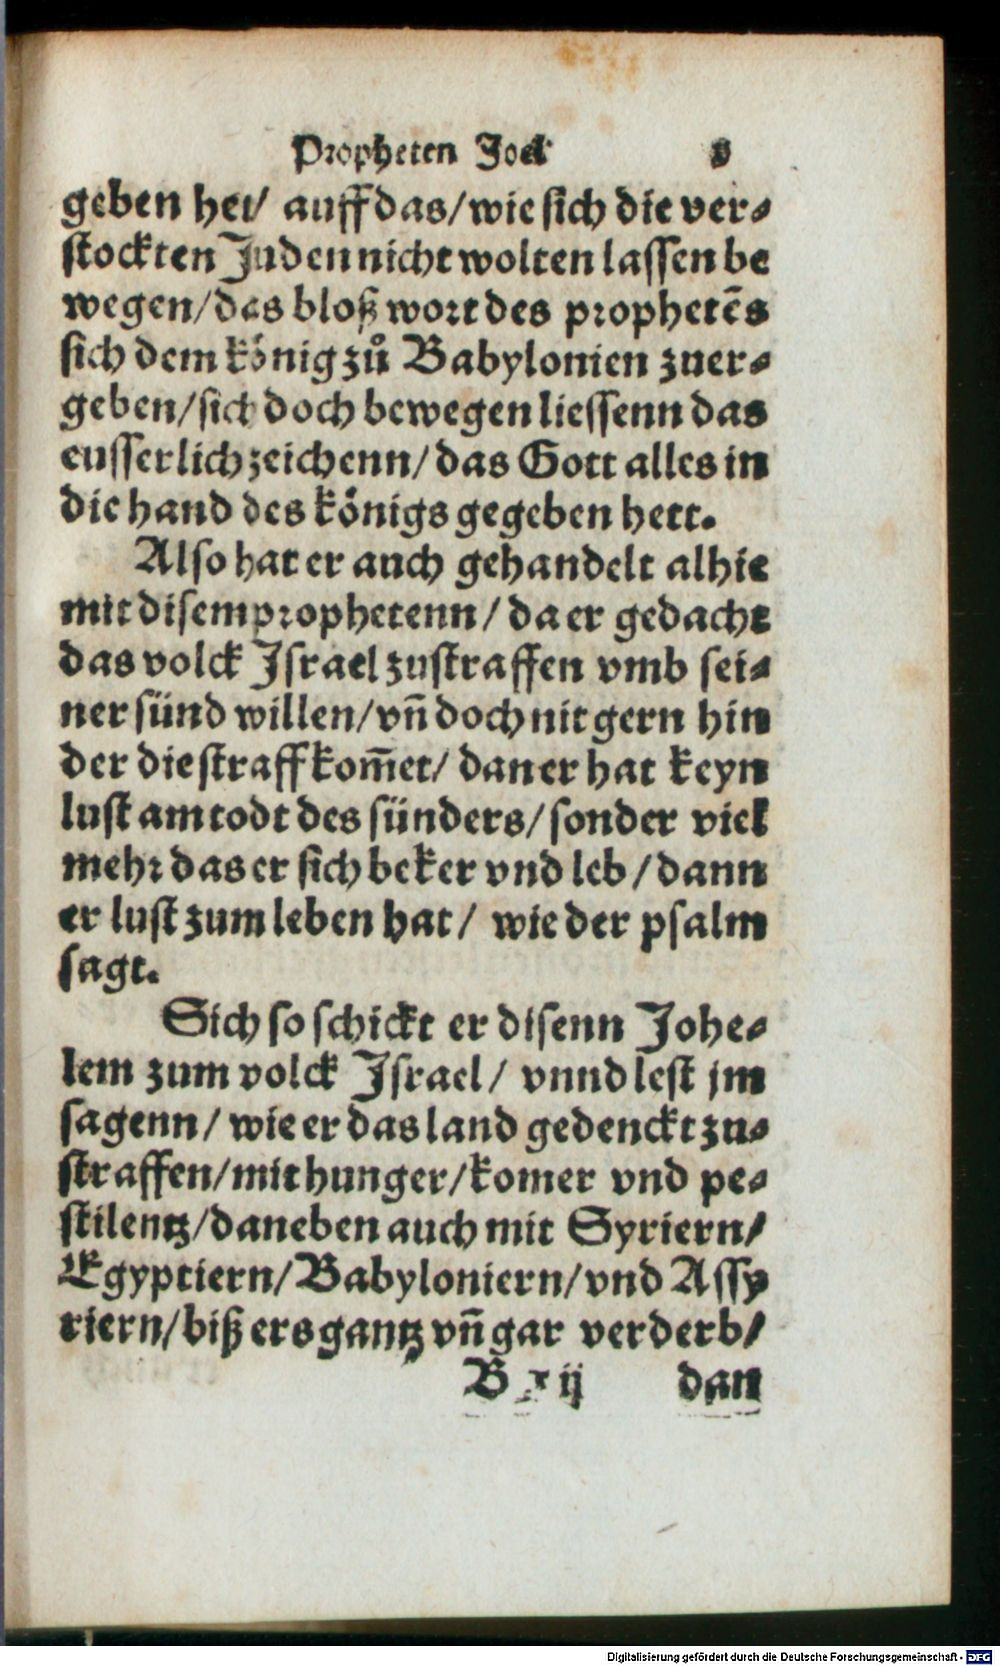 Propheten Joel
geben het/ auff das/ wie sich die ver⸗
stockten Juden nicht wolten lassen be
wegen/ das bloß wort des prophetēs
sich dem könig zů Babylonien zuer⸗
geben/ sich doch bewegen liessenn das
eusserlich zeichenn/ das Gott alles in
die hand des königs gegeben hett.
Also hat er auch gehandelt alhie
mit disem prophetenn/ da er gedacht
das volck Israel zustraffen vmb sei⸗
ner sünd willen/ vñ doch nit gern hin
der die straff kom̄et/ dan er hat keyn
lust am todt des sünders/ sonder viel
mehr das er sich beker vnd leb/ dann
er lust zum leben hat/ wie der psalm
sagt.
Sich so schickt er disenn Johe⸗
lem zum volck Israel/ vnnd lest jm
sagenn/ wie er das land gedenckt zu⸗
straffen/ mit hunger/ komer vnd pe⸗
stilentz/ daneben auch mit Syriern/
Egyptiern/ Babyloniern/ vnd Assy
riern/ biß ers gantz vñ gar verderb/
B ij dan
Digitalisierung gefördert durch die Deutsche Forschungsgemeinschaft - DFG